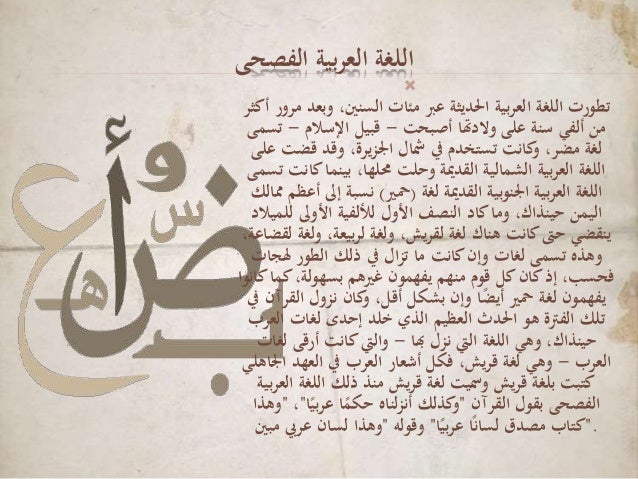 اللغة العربية الفصحى
تطورت اللغة العربية الحديثة عبر مئات السنين، وبعد مرور أكثر
من ألفي سنة على ولادتها أصبحت – قبيل الإسلام – تسمى
لغة مضر، وكانت تستخدم في شمال الجزيرة، وقد قضت على
اللغة العربية الشمالية القديمة وحلت محلها، بينما كانت تسمى
اللغة العربية الجنوبية القديمة لغة (حمير) نسبة إلى أعظم ممالك
اليمن حينذاك، وما كاد النصف الأول للألفية الأولى للميلاد
ينقضي حتى كانت هناك لغة لقريش، ولغة لربيعة، ولغة لقضاعة،
وهذه تسمى لغات وإن كانت ما تزال في ذلك الطور لهجات
فحسب، إذ كان كل قوم منهم يفهمون غيرهم بسهولة، كما كانوا
يفهمون لغة حمير أيضًا وإن بشكل أقل، وكان نزول القرآن في
تلك الفترة هو الحدث العظيم الذي خلد إحدى لغات العرب
حينذاك، وهي اللغة التي نزل بها – والتي كانت أرقى لغات
العرب – وهي لغة قريش، فكل أشعار العرب في العهد الجاهلي
كتبت بلغة قريش وسميت لغة قريش منذ ذلك اللغة العربية
الفصحى بقول القرآن "وكذلك أنزلناه حكمًا عربيًا"، "وهذا
كتاب مصدق لسانًا عربيًا" وقوله "وهذا لسان عربي مبين".
أ
و
ض
س
ع
هـ
بد